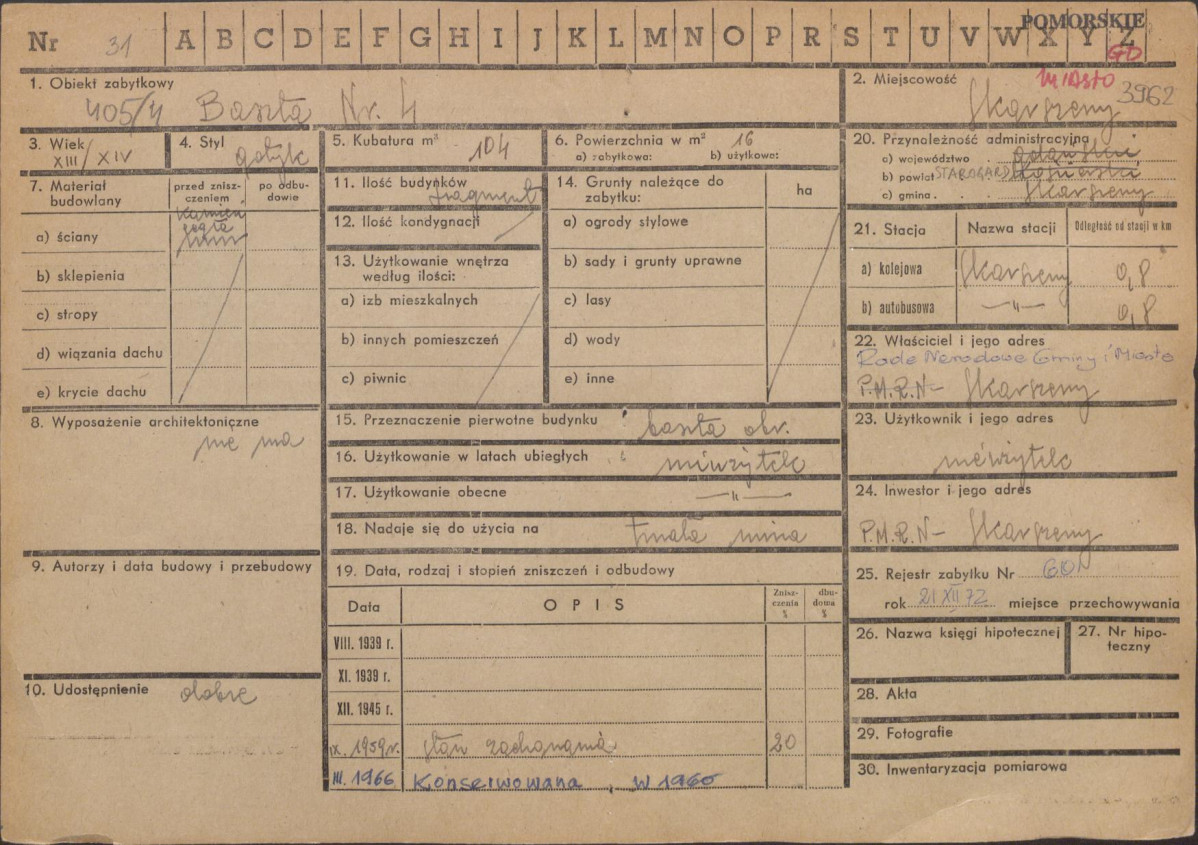 POMORSKIE
Nr 31 A B C D E F G H I J K L M N O P R S T U V W X Y Z
GD
1. Obiekt zabytkowy
405/4 Baszta Nr. 4
2. Miejscowość MIASTO
Skarszewy 3962
3. Wiek
XIII/XIV
4. Styl
gotyk
5. Kubatura m³ 104
6. Powierzchnia w m² 16
a) zabytkowa: b) użytkowa:
20. Przynależność administracyjna
c) województwo gdańskie
b) powiat STAROGARD
c) gmina Skarszewy
7. Materiał budowlany
przed zniszczeniem
po odbudowie
kamień
cegła
a) ściany
b) sklepienia
c) stropy
d) wiązania dachu
e) krycie dachu
11. Ilość budynków
fragment
12. Ilość kondygnacji
13. Użytkowanie wnętrza
według ilości:
a) izb mieszkalnych
b) innych pomieszczeń
c) piwnic
14. Grunty należące do
zabytku:
ha
a) ogrody stylowe
b) sady i grunty uprawne
c) lasy
d) wody
e) inne
21. Stacja Nazwa stacji Odległość od stacji w km
a) kolejowa Skarszewy 0,8
b) autobusowa —„— 0,8
22. Właściciel i jego adres
Rada Narodowa Gminy i Miasta
P.M.R.N– Skarszewy
8. Wyposażenie architektoniczne
nie ma
15. Przeznaczenie pierwotne budynku baszta obr.
16. Użytkowanie w latach ubiegłych nieużytek
17. Użytkowanie obecne —„—
18. Nadaje się do użycia na trwała ruina
23. Użytkownik i jego adres
nieużytek
24. Inwestor i jego adres
P.M.R.N– Skarszewy
9. Autorzy i data budowy i przebudowy
10. Udostępnienie dobre
19. Data, rodzaj i stopień zniszczeń i odbudowy
Data OPIS Zniszczenia % dbudoma %
VIII. 1939 r.
XI. 1939 r.
XII. 1945 r.
IX. 1959 r. stan zachowania 20
III. 1966 Konserwowana w 1960
25. Rejestr zabytku Nr 601
rok 21 XII 72 miejsce przechowywania
26. Nazwa księgi hipotecznej
27. Nr hipoteczny
28. Akta
29. Fotografie
30. Inwentaryzacja pomiarowa